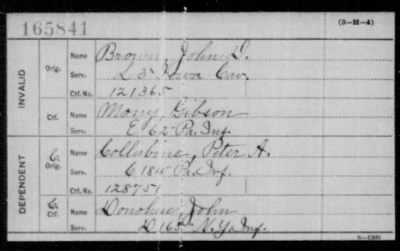 165841
(3-H-4)
INVALID
Orig.
Name Brown, John D.
Serv. L 3" Iowa Cav.
Ctf. No. 121365
Ctf.
Name Gibson
Serv. E 62 Pa. Inf.
DEPENDENT
C. Orig.
Name Collubine, Peter A.
Serv. C 184 Pa. Inf.
Ctf. No. 128751
C. Ctf.
Name Donohue, John
Serv. D 165 N.Y. Inf.